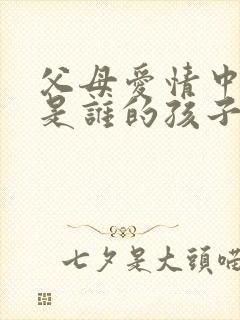 父母愛情中
是誰的孩子
七夕是大頭喏